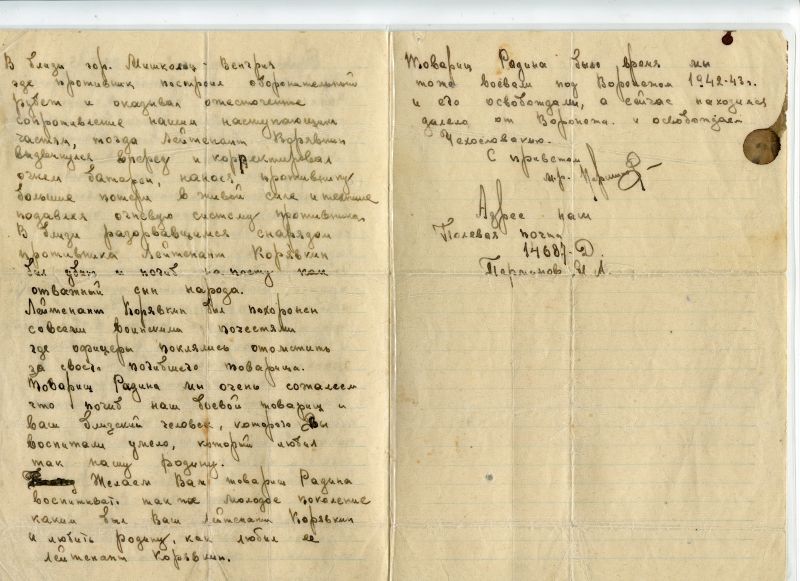 В близи гор. Мишкольц - Венгрия
где противник построил оборонительный
рубеж и оказывал ожесточенное
сопротивление нашим наступающим
частям, тогда Лейтенант Корявкин
выдвинулся вперед и корректировал
огнем батареи, нанося противнику
большие потери в живой силе и технике
подавляя огневую систему противника.
В близи разорвавшимся снарядом
противника Лейтенант Корявкин
был убит и погиб на посту как
отважный сын народа.
Лейтенант Корявкин был похоронен
со всеми воинскими почестями
где офицеры поклялись отомстить
за своего погибшего товарища.
Товарищ Радина мы очень сожалеем
что погиб наш боевой товарищ и
ваш близкий человек, которого Вы
воспитали умело, который любил
так нашу родину.
Желаем Вам товарищ Радина
воспитывать так же молодое поколение
каким был Ваш Лейтенант Корявкин
и любить родину, как любил ее
Лейтенант Корявкин.
Товарищ Радина было время мы
тоже воевали под Воронежом 1942-43 г.
и его освобождали, а сейчас находимся
далеко от Воронежа и освобождаем
Чехословакию.
С приветом
м-р.
Адрес наш
Полевая почта
14687-Д.
Перминов И. А.